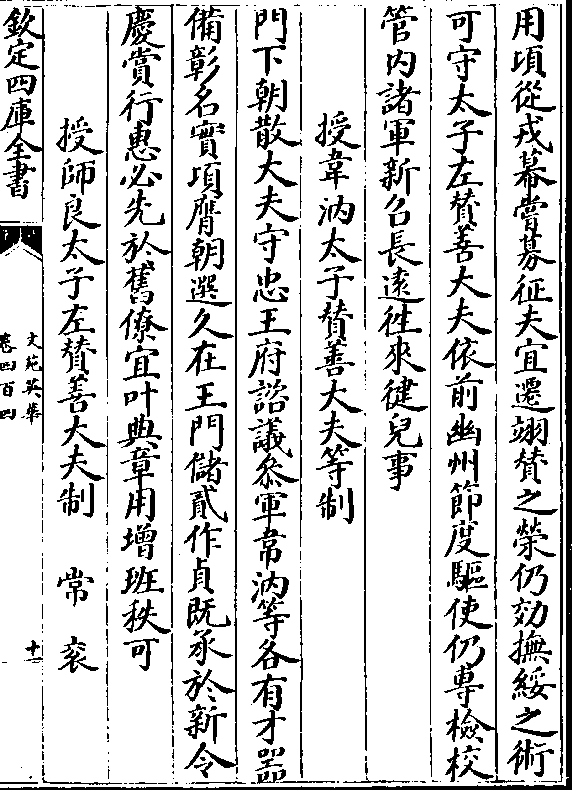 用項從戎幕嘗募征夫宜遷翊賛之榮仍効撫綏之術
可守太子左賛善大夫依前幽州節度驅使仍專檢校
管内諸軍新召長遠徃來健兒事
授韋汭太子賛善大夫等制
門下朝散大夫守忠王府諮議叅軍韋汭等各有才器
備彰名實項膺朝選久在王門儲貳作貞既承於新令
慶賞行惠必先於舊僚宜叶典章用增班秩可
授師良太子左賛善大夫制 常衮
欽定四庫全書
文苑英華
卷四百四
十一